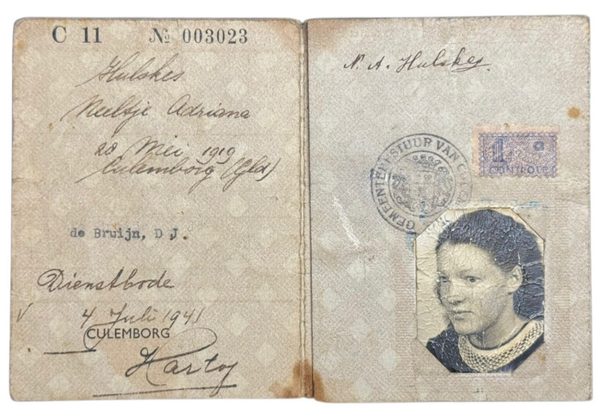 C 11 № 003023
Hulskes
Neeltje Adriana
20 Mei 1919
Culemborg (Gld)
de Bruijn, D J.
Dienstbode
4 Juli 1941
CULEMBORG
Hartog
N. A. Hulskes.
GEMEENTEBESTUUR VAN
1
CONTROLE